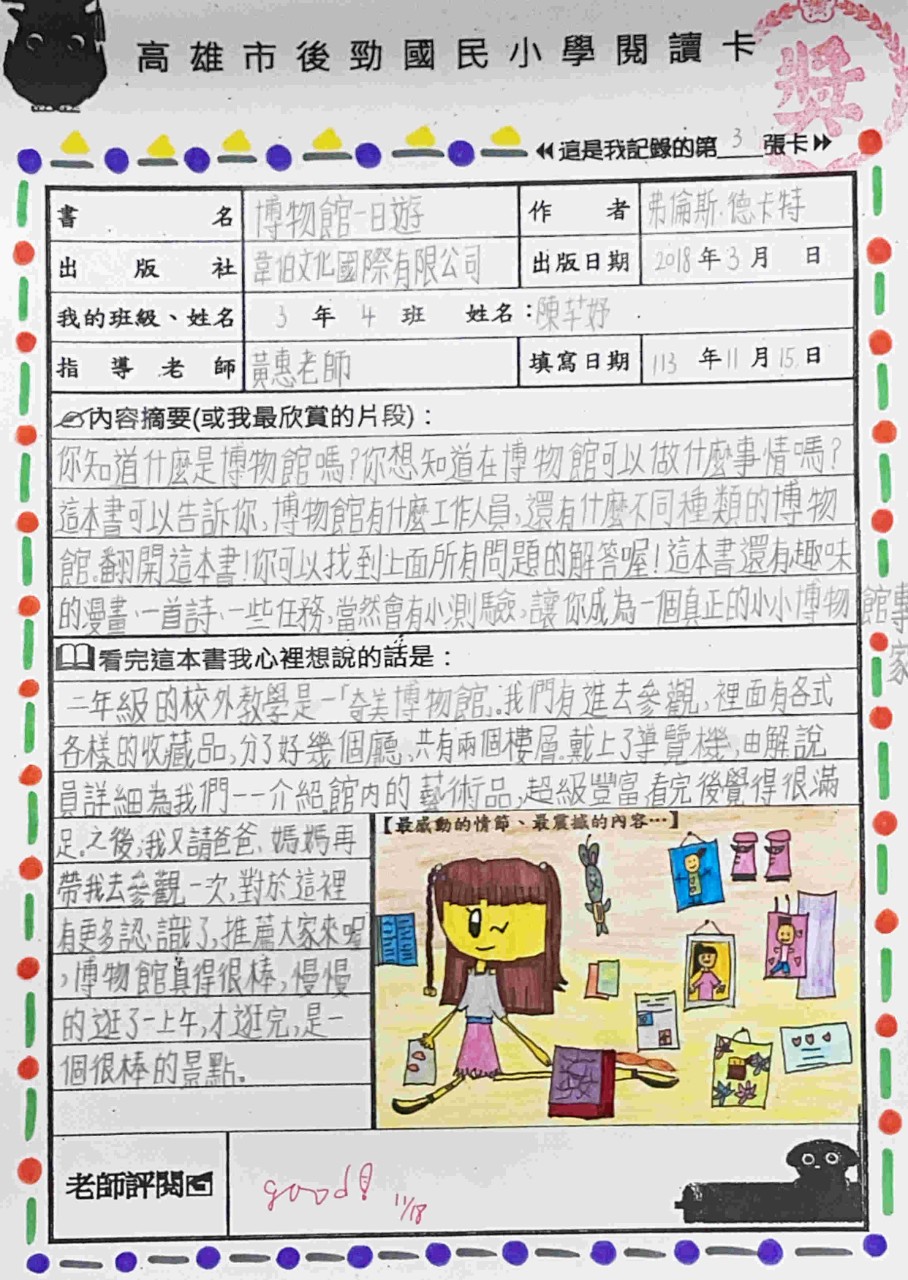 高雄市後勁國民小學閱讀卡
獎
這是我記錄的第3張卡
書名 博物館一日遊 作者 弗倫斯.德卡特
出版社 韋伯文化國際有限公司 出版日期 2018年3月 日
我的班級、姓名 3年4班 姓名:陳芊妤
指導老師 黃惠老師 填寫日期 113年11月15日
內容摘要(或我最欣賞的片段):
你知道什麼是博物館嗎?你想知道在博物館可以做什麼事情嗎?
這本書可以告訴你,博物館有什麼工作人員,還有什麼不同種類的博物
館。翻開這本書!你可以找到上面所有問題的解答喔!這本書還有趣味
的漫畫、一首詩、一些任務,當然會有小測驗,讓你成為一個真正的小小博物館專家
看完這本書我心裡想說的話是:
二年級的校外教學是—「奇美博物館」。我們有進去參觀,裡面有各式
各樣的收藏品,分了好幾個廳、共有兩個樓層。戴上了導覽機,由解說
員詳細為我們一一介紹館內的藝術品,超級豐富,看完後覺得很滿
足。之後,我又請爸爸、媽媽再
帶我去參觀一次,對於這裡
有更多認識了,推薦大家來喔
,博物館真得很棒,慢慢
的逛了一上午,才逛完,是一
個很棒的景點。
【最感動的情節、最震撼的內容…】
老師評閱
good!
11/18